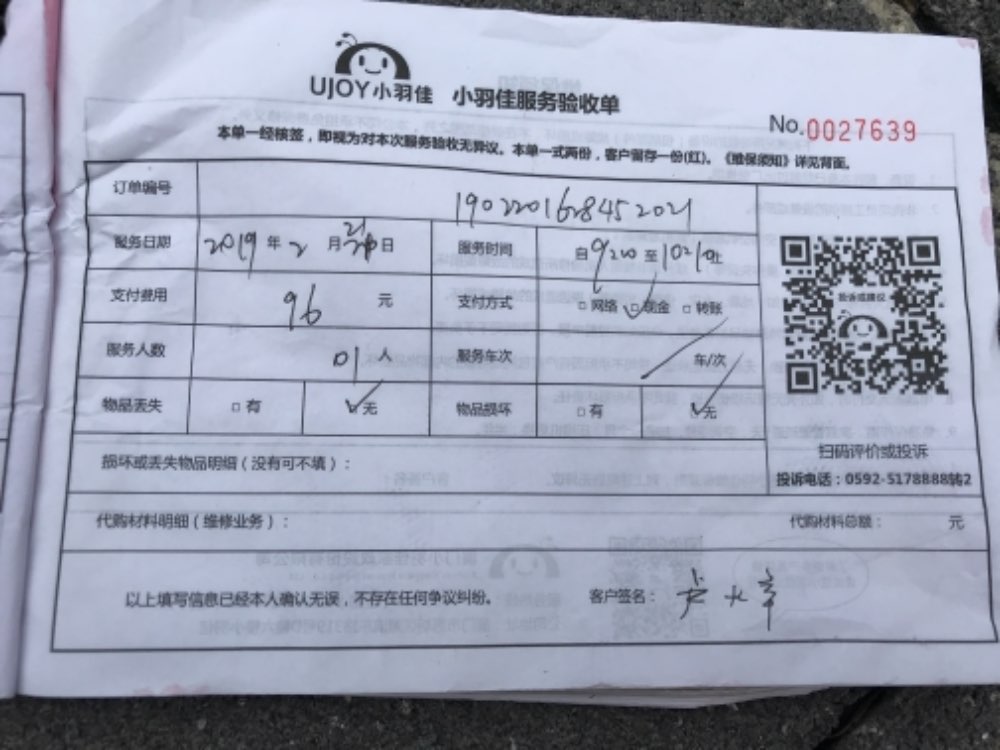 UJOY小羽佳 小羽佳服务验收单
No.0027639
本单一经核签，即视为对本次服务验收无异议。本单一式两份，客户留存一份(红)。《维保须知》详见背面。
订单编号 1902201628452021
服务日期 2019年2月21日 服务时间 自9200至1020止
支付费用 96元 支付方式 □网络 □现金 □转账
投诉或建议
服务人数 01人 服务车次 车/次
物品丢失 □有 □无 物品损坏 □有 □无
扫码评价或投诉
损坏或丢失物品明细（没有可不填）：
投诉电话：0592-5178888转2
代购材料明细（维修业务）： 代购材料总额： 元
以上填写信息已经本人确认无误，不存在任何争议纠纷。 客户签名：